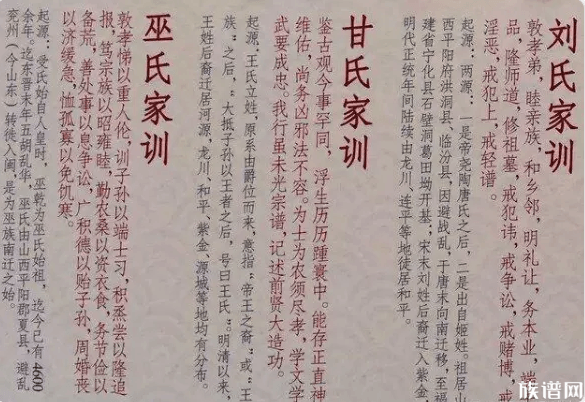 刘氏家训
敦孝弟，睦亲族，和乡邻，明礼让，务本业，端
品，隆师道，修祖墓，戒犯讳，戒争讼，戒赌博，戒
淫恶，戒犯上，戒轻谱。
起源：两源：一是帝尧陶唐氏之后，二是出自姬姓。祖居山
西平阳府洪洞县，临汾县，因避战乱，于唐末向南迁移，至福
建省宁化县石壁洞葛田坳开基；宋末刘姓后裔迁入紫金，
明代正统年间陆续由龙川、连平等地徙居和平。
甘氏家训
鉴古观今事不同，浮生历历踵寰中。能存正直神
维佑，尚务凶邪法不容。为士为农须尽孝，学文学
武要成忠。我行虽未光宗谱，记述前贤大造功。
起源：王氏立姓，原系由爵位而来，意指：“帝王之裔”或“王
族”之后，“大抵子孙以王者之后，号曰王氏”。明清以来，
王姓后裔迁居河源，龙川、和平、紫金、源城等地均有分布。
巫氏家训
敦孝悌以重人伦，训子孙以端士习，积蒸尝以隆追
报，笃宗族以昭雍睦，勤农桑以资衣食，务节俭以
备荒，善处事以息争讼，广积德以贻子孙，周婚丧
以济缓急，恤孤寡以免饥寒。
起源：受氏始自人皇时，巫乾为巫氏始祖，迄今已有4600
余年。迄东晋末年五胡乱华，巫氏由山西平阳郡夏县，避乱
兖州（今山东）转徙入闽，是为巫族南迁之始。
族谱网